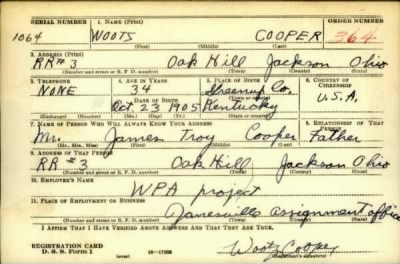 SERIAL NUMBER 1. NAME (Print) ORDER NUMBER
1064 WOOTS COOPER 364
(First) (Middle) (Last)
2. ADDRESS (Print)
RR#3 Oak Hill Jackson Ohio
(Number and street or R. F. D. number) (Town) (County) (State)
3. TELEPHONE 4. AGE IN YEARS 5. PLACE OF BIRTH 6. COUNTRY OF CITIZENSHIP
NONE 34 Greenup Co. U.S.A.
DATE OF BIRTH (Town or county)
Oct 23 1905 Kentucky
(Exchange) (Number) (Mo.) (Day) (Yr.) (State or country)
7. NAME OF PERSON WHO WILL ALWAYS KNOW YOUR ADDRESS 8. RELATIONSHIP OF THAT PERSON
Mr. James Troy Cooper Father
(Mr., Mrs., Miss) (First) (Middle) (Last)
9. ADDRESS OF THAT PERSON
RR #3 Oak Hill Jackson Ohio
(Number and street or R. F. D. number) (Town) (County) (State)
10. EMPLOYER'S NAME
WPA project
11. PLACE OF EMPLOYMENT OR BUSINESS
assignment office
(Number and street or R. F. D. number) (Town) (County) (State)
I AFFIRM THAT I HAVE VERIFIED ABOVE ANSWERS AND THAT THEY ARE TRUE.
REGISTRATION CARD
D. S. S. Form 1 Woots Cooper